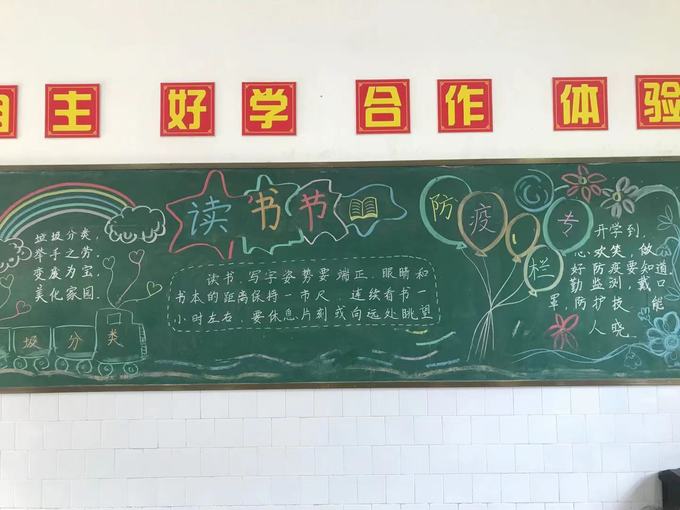 自主 好学 合作 体验
垃圾分类，
举手之劳，
变废为宝，
美化家园。
圾 分 类
读书节
读书、写字姿势要端正,眼睛和
书本的距离保持一市尺,连续看书一
小时左右,要休息片刻或向远处眺望
防疫专栏
开学到,
心欢笑,做
好防疫要知道
勤监测,戴口
罩,防护技能
人晓。